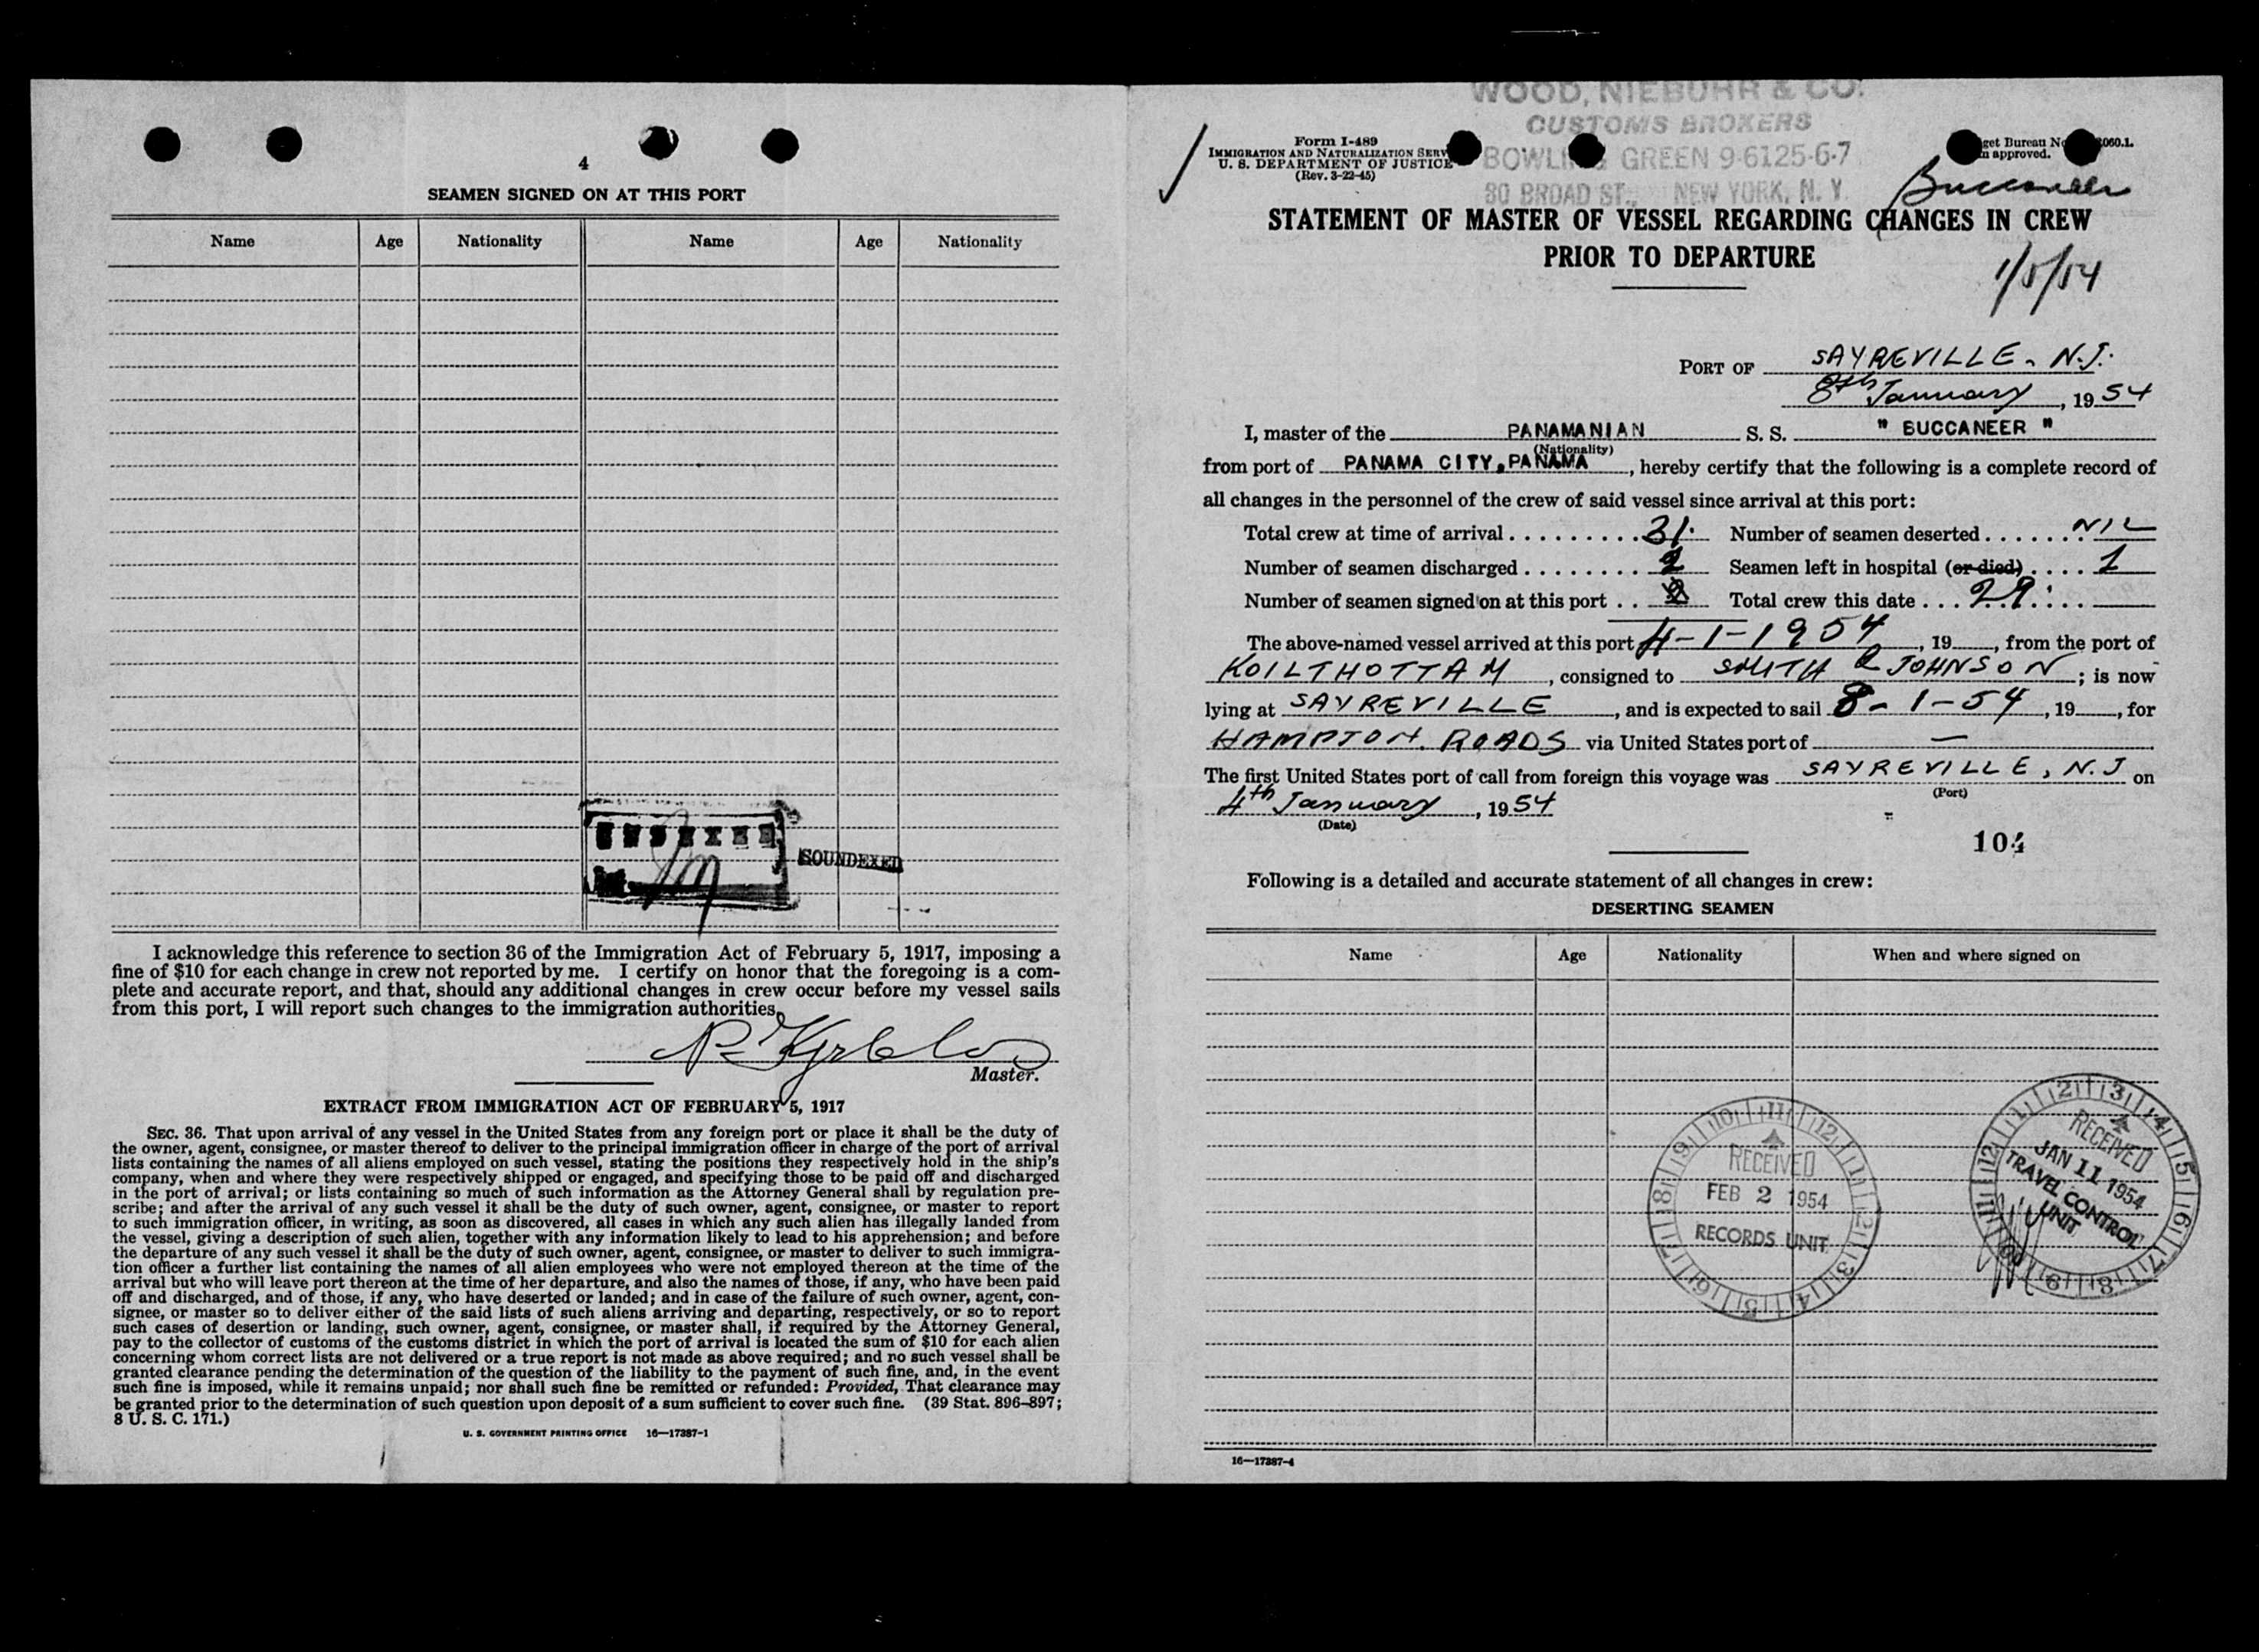 4
SEAMEN SIGNED ON AT THIS PORT
Name Age Nationality Name Age Nationality
INDEXED
SOUNDEXED
I acknowledge this reference to section 36 of the Immigration Act of February 5, 1917, imposing a
fine of $10 for each change in crew not reported by me. I certify on honor that the foregoing is a com-
plete and accurate report, and that, should any additional changes in crew occur before my vessel sails
from this port, I will report such changes to the immigration authorities.
Master.
EXTRACT FROM IMMIGRATION ACT OF FEBRUARY 5, 1917
SEC. 36. That upon arrival of any vessel in the United States from any foreign port or place it shall be the duty of
the owner, agent, consignee, or master thereof to deliver to the principal immigration officer in charge of the port of arrival
lists containing the names of all aliens employed on such vessel, stating the positions they respectively hold in the ship's
company, when and where they were respectively shipped or engaged, and specifying those to be paid off and discharged
in the port of arrival; or lists containing so much of such information as the Attorney General shall by regulation pre-
scribe; and after the arrival of any such vessel it shall be the duty of such owner, agent, consignee, or master to report
to such immigration officer, in writing, as soon as discovered, all cases in which any such alien has illegally landed from
the vessel, giving a description of such alien, together with any information likely to lead to his apprehension; and before
the departure of any such vessel it shall be the duty of such owner, agent, consignee, or master to deliver to such immigra-
tion officer a further list containing the names of all alien employees who were not employed thereon at the time of the
arrival but who will leave port thereon at the time of her departure, and also the names of those, if any, who have been paid
off and discharged, and of those, if any, who have deserted or landed; and in case of the failure of such owner, agent, con-
signee, or master so to deliver either of the said lists of such aliens arriving and departing, respectively, or so to report
such cases of desertion or landing, such owner, agent, consignee, or master shall, if required by the Attorney General,
pay to the collector of customs of the customs district in which the port of arrival is located the sum of $10 for each alien
concerning whom correct lists are not delivered or a true report is not made as above required; and no such vessel shall be
granted clearance pending the determination of the question of the liability to the payment of such fine, and, in the event
such fine is imposed, while it remains unpaid; nor shall such fine be remitted or refunded: Provided, That clearance may
be granted prior to the determination of such question upon deposit of a sum sufficient to cover such fine. (39 Stat. 896–897;
8 U. S. C. 171.)
U. S. GOVERNMENT PRINTING OFFICE 16—17387-1
WOOD, NIEBUHR & CO.
CUSTOMS BROKERS
BOWLING GREEN 9-6125-6-7
80 BROAD ST., NEW YORK, N. Y.
Form I-489
IMMIGRATION AND NATURALIZATION SERV
U. S. DEPARTMENT OF JUSTICE
(Rev. 3-22-45)
get Bureau No 060.1.
approved.
Buccaneer
STATEMENT OF MASTER OF VESSEL REGARDING CHANGES IN CREW
PRIOR TO DEPARTURE
1/5/54
PORT OF SAYREVILLE, N.J.
8th January, 1954
I, master of the PANAMANIAN S. S. "BUCCANEER"
(Nationality)
from port of PANAMA CITY, PANAMA, hereby certify that the following is a complete record of
all changes in the personnel of the crew of said vessel since arrival at this port:
Total crew at time of arrival 31. Number of seamen deserted NIL
Number of seamen discharged Seamen left in hospital (or died) 1
Number of seamen signed on at this port Total crew this date 29.
The above-named vessel arrived at this port 4-1-1954, 19, from the port of
KOILTHOTTAM, consigned to SMITH & JOHNSON; is now
lying at SAYREVILLE, and is expected to sail 8-1-54, 19, for
HAMPTON ROADS via United States port of —
The first United States port of call from foreign this voyage was SAYREVILLE, N.J on
(Port)
4th January, 1954
(Date)
104
Following is a detailed and accurate statement of all changes in crew:
DESERTING SEAMEN
Name Age Nationality When and where signed on
RECEIVED
FEB 2 1954
RECORDS UNIT
RECEIVED
JAN 11 1954
TRAVEL CONTROL
UNIT
16—17387-4